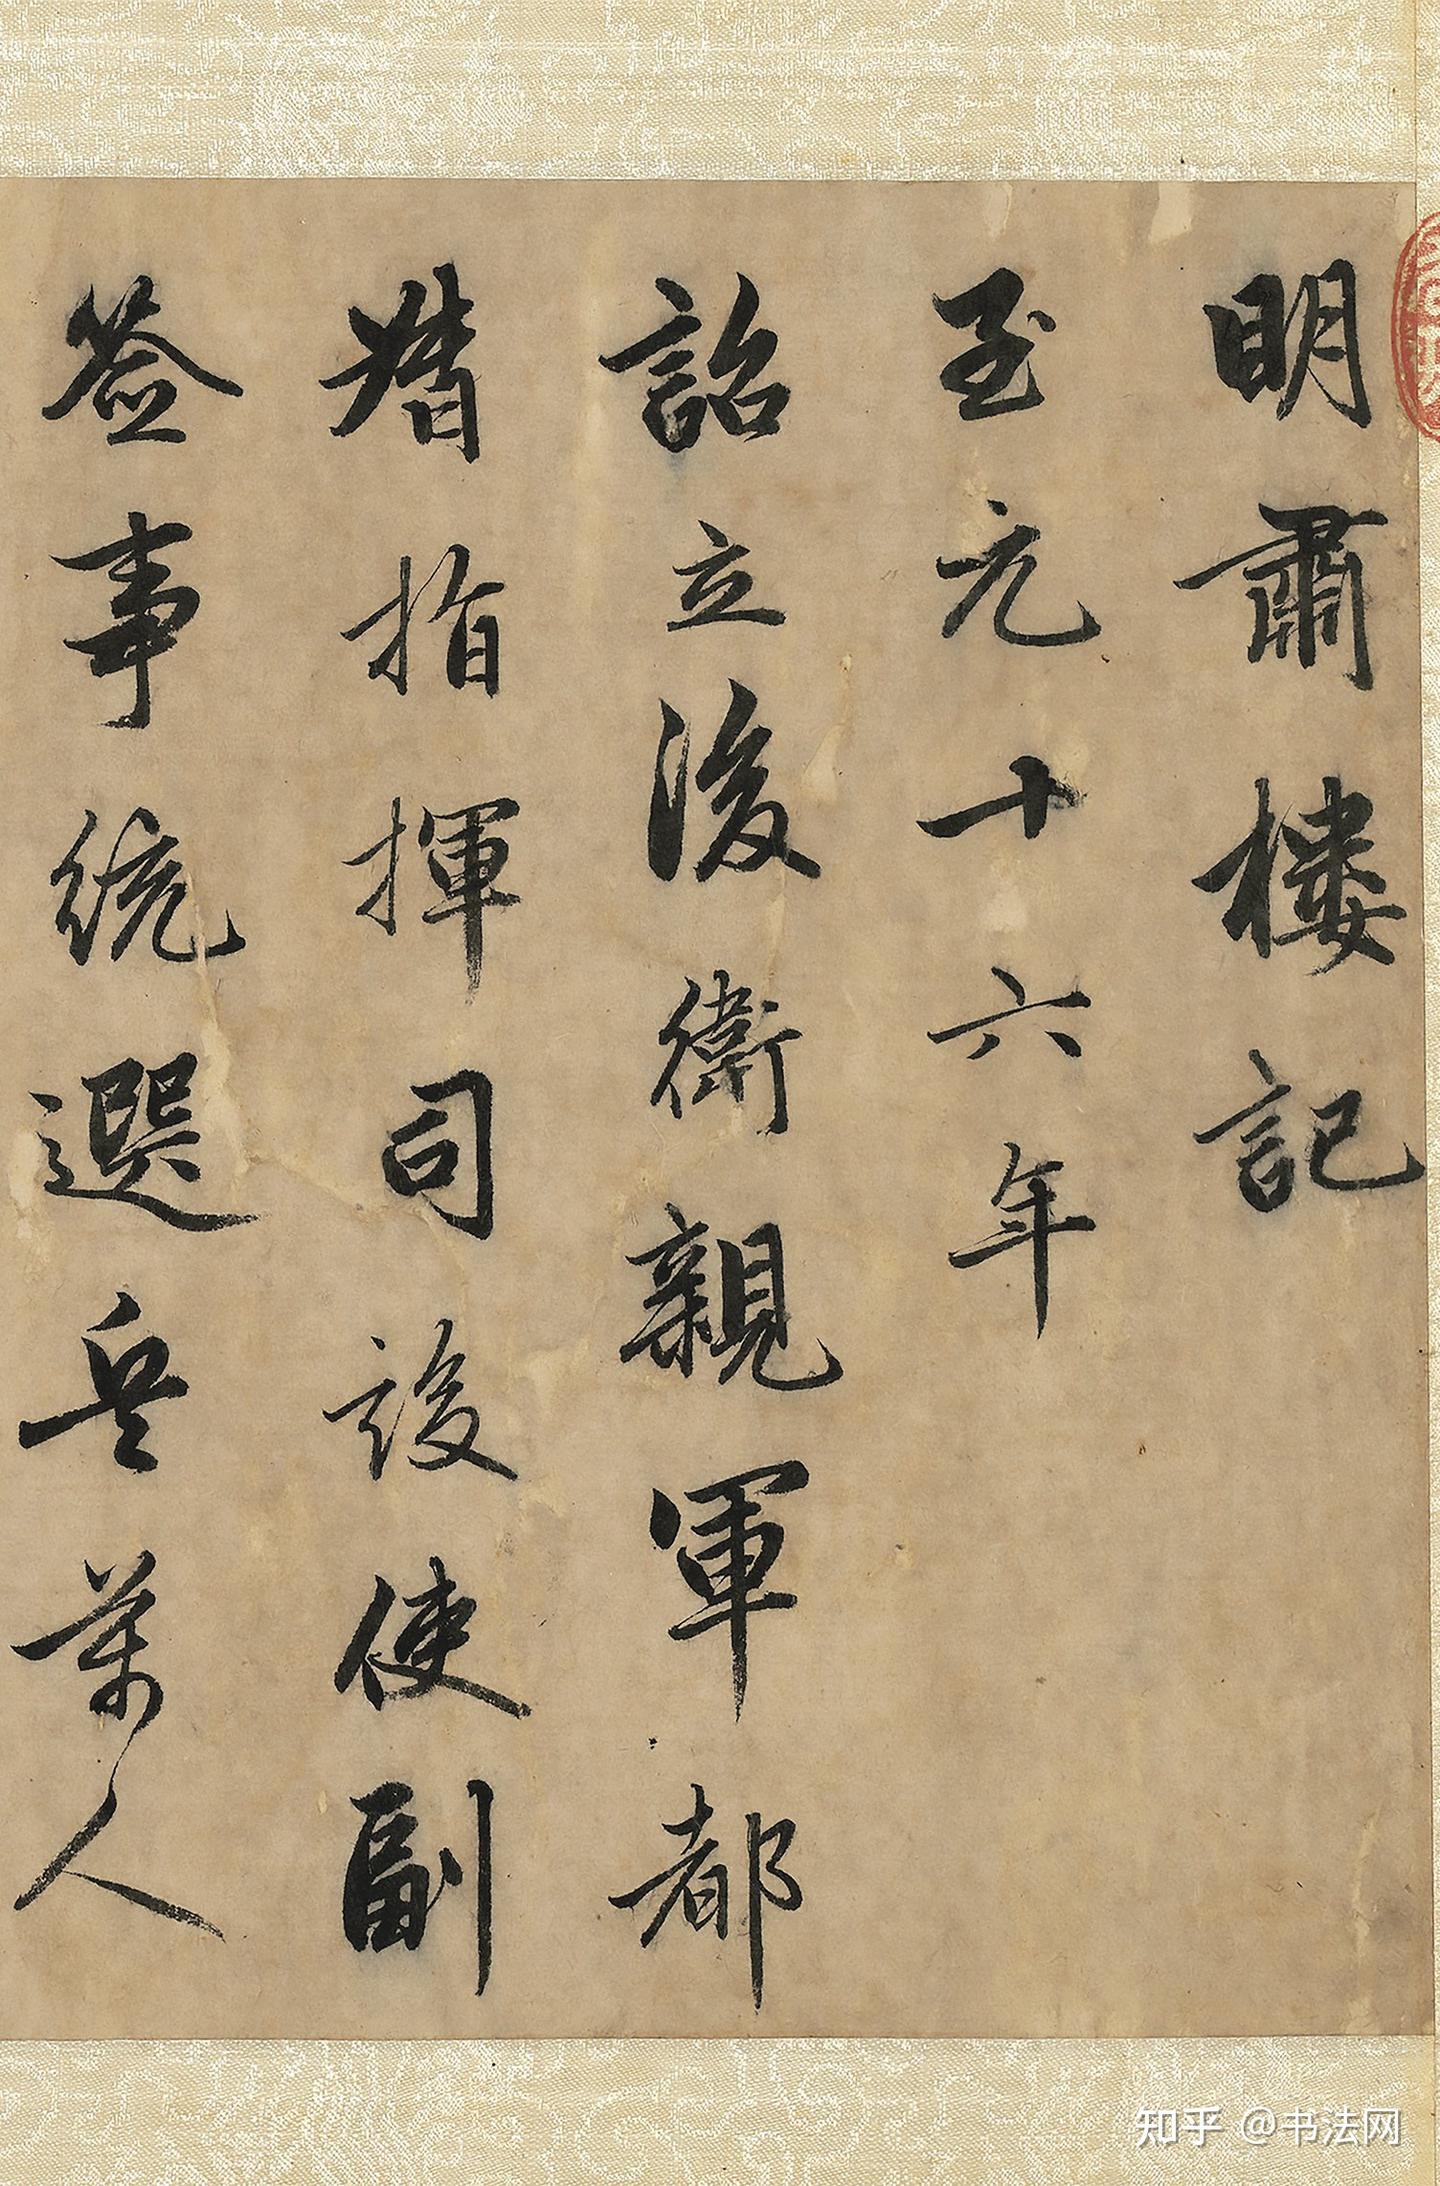 明肅樓記
至元十六年
詔立後衛親軍都
指揮司設使副
簽事統選兵萬人
知乎 @书法网